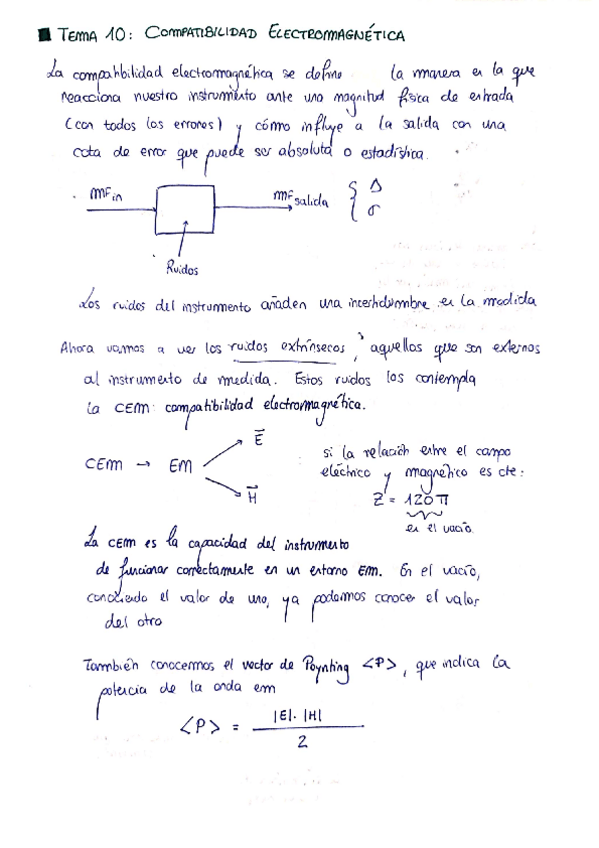 TEMA 10: COMPATIBILIDAD ELECTROMAGNÉTICA
La compatibilidad electromagnética se define la manera en la que
reacciona nuestro instrumento ante una magnitud física de entrada
(con todos los errores) y cómo influye a la salida con una
cota de error que puede ser absoluta o estadística.
MF in
MF salida { Δ
σ
Ruidos
Los ruidos del instrumento añaden una incertidumbre en la medida
Ahora vamos a ver los ruidos extrínsecos, aquellos que son externos
al instrumento de medida. Estos ruidos los contempla
la CEM: compatibilidad electromagnética.
CEM → EM
E
H
si la relación entre el campo
eléctrico y magnético es cte:
Z = 120π
en el vacío
La CEM es la capacidad del instrumento
de funcionar correctamente en un entorno EM. En el vacío,
conociendo el valor de uno, ya podemos conocer el valor
del otro
También conocemos el vector de Poynting <P>, que indica la
potencia de la onda em
<P> = |E|·|H|
2